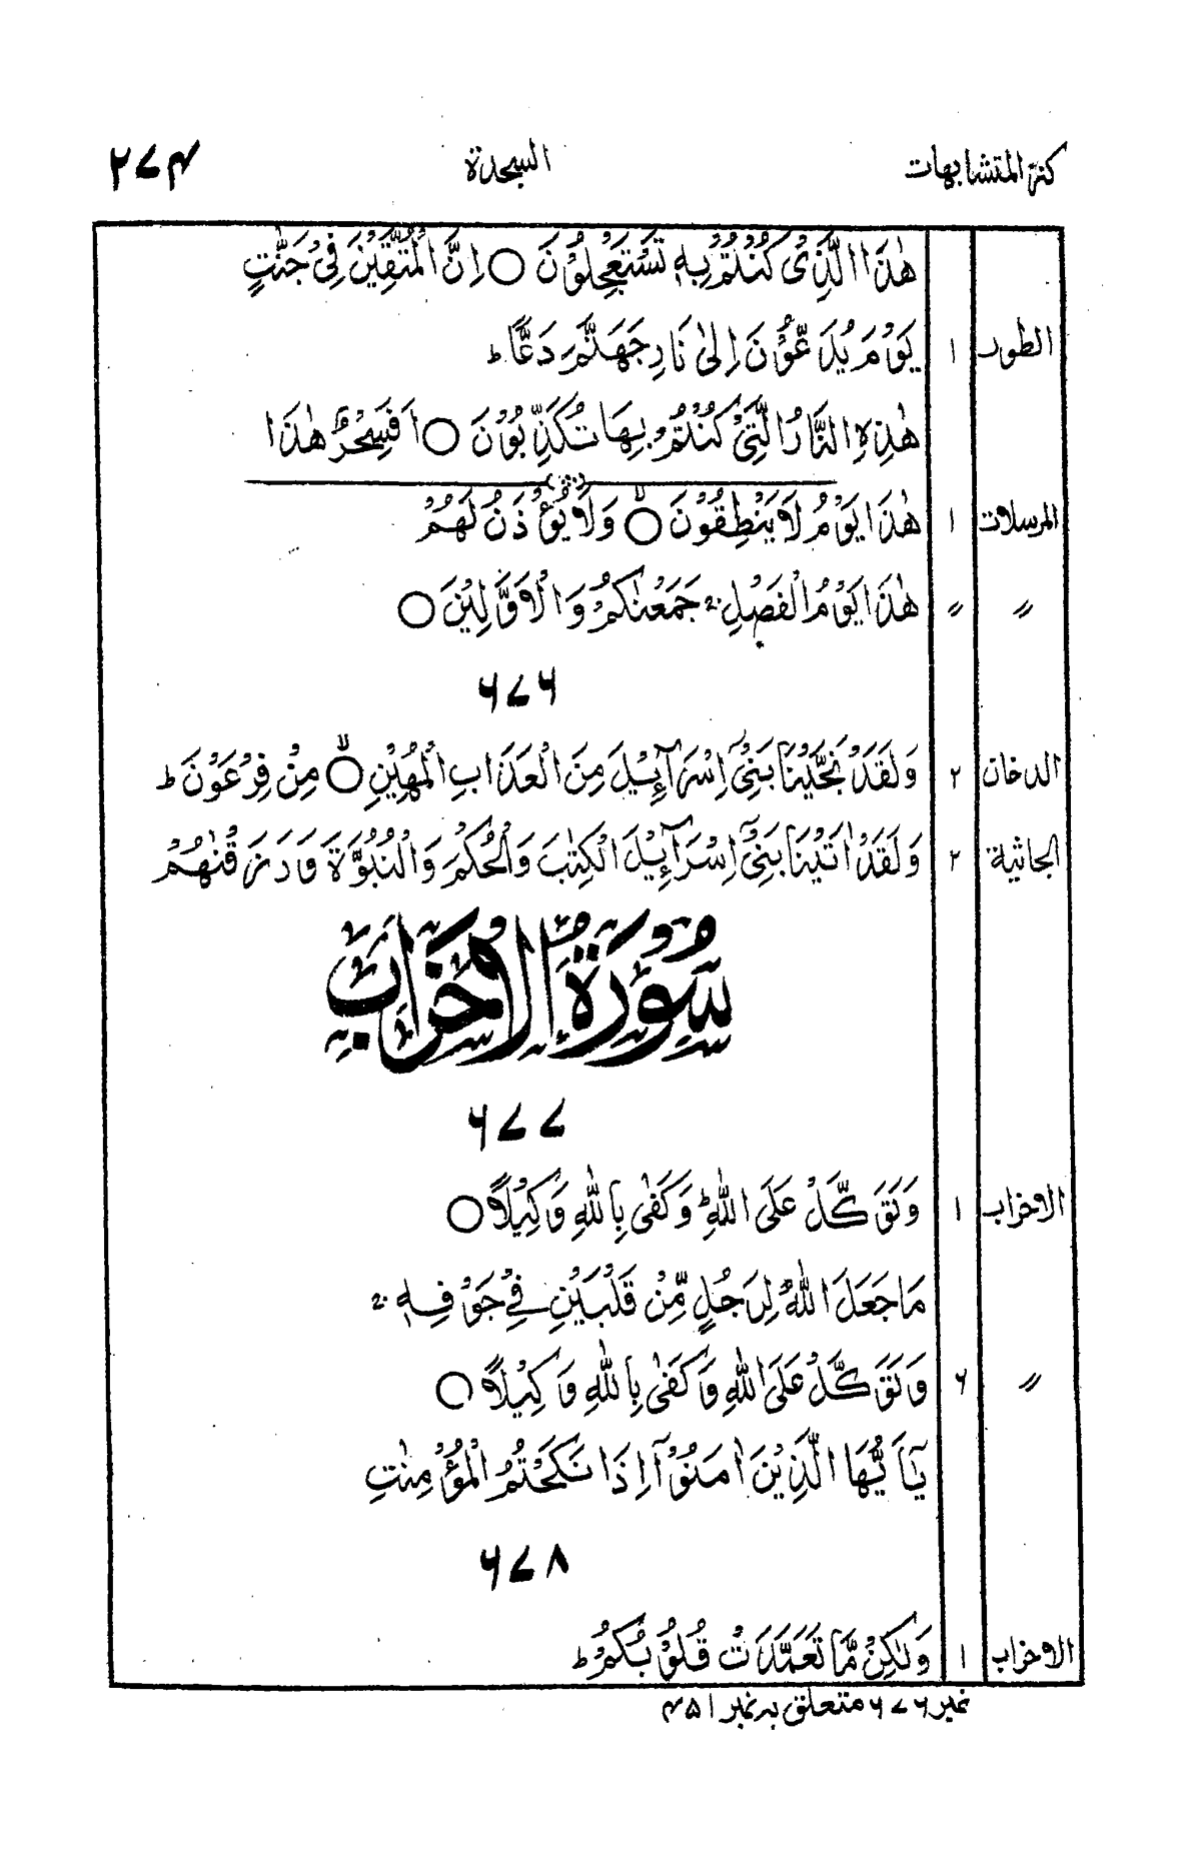 کنز المتشابهات السجدة ۲۷۴
هٰذَا الَّذِیْ كُنْتُمْ بِهٖ تَسْتَعْجِلُوْنَ ○ اِنَّ الْمُتَّقِیْنَ فِیْ جَنّٰتٍ
الطور ۱ یَوْمَ یُدَعُّوْنَ اِلٰی نَارِ جَهَنَّمَ دَعًّا ؕ
هٰذِهِ النَّارُ الَّتِیْ كُنْتُمْ بِهَا تُكَذِّبُوْنَ ○ اَفَسِحْرٌ هٰذَا
المرسلات ۱ هٰذَا یَوْمُ لَا یَنْطِقُوْنَ ○ۙ وَلَا یُؤْذَنُ لَهُمْ
〃 〃 هٰذَا یَوْمُ الْفَصْلِ ۚ جَمَعْنٰكُمْ وَالْاَوَّلِیْنَ ○
۶۷۶
الدخان ۲ وَلَقَدْ نَجَّیْنَا بَنِیْۤ اِسْرَآءِیْلَ مِنَ الْعَذَابِ الْمُهِیْنِ ○ۙ مِنْ فِرْعَوْنَ ؕ
الجاثیة ۲ وَلَقَدْ اٰتَیْنَا بَنِیْۤ اِسْرَآءِیْلَ الْكِتٰبَ وَالْحُكْمَ وَالنُّبُوَّةَ وَرَزَقْنٰهُمْ
سُوْرَةُ الْاَحْزَابِ
۶۷۷
الاحزاب ۱ وَتَوَكَّلْ عَلَی اللّٰهِ ؕ وَكَفٰی بِاللّٰهِ وَكِیْلًا ○
مَا جَعَلَ اللّٰهُ لِرَجُلٍ مِّنْ قَلْبَیْنِ فِیْ جَوْفِهٖ ۚ
〃 ۶ وَتَوَكَّلْ عَلَی اللّٰهِ وَكَفٰی بِاللّٰهِ وَكِیْلًا ○
یٰۤاَیُّهَا الَّذِیْنَ اٰمَنُوْۤا اِذَا نَكَحْتُمُ الْمُؤْمِنٰتِ
۶۷۸
الاحزاب ۱ وَلٰكِنْ مَّا تَعَمَّدَتْ قُلُوْبُكُمْ ؕ
نمبر ۶۷۶ متعلق بہ نمبر ۴۵۱